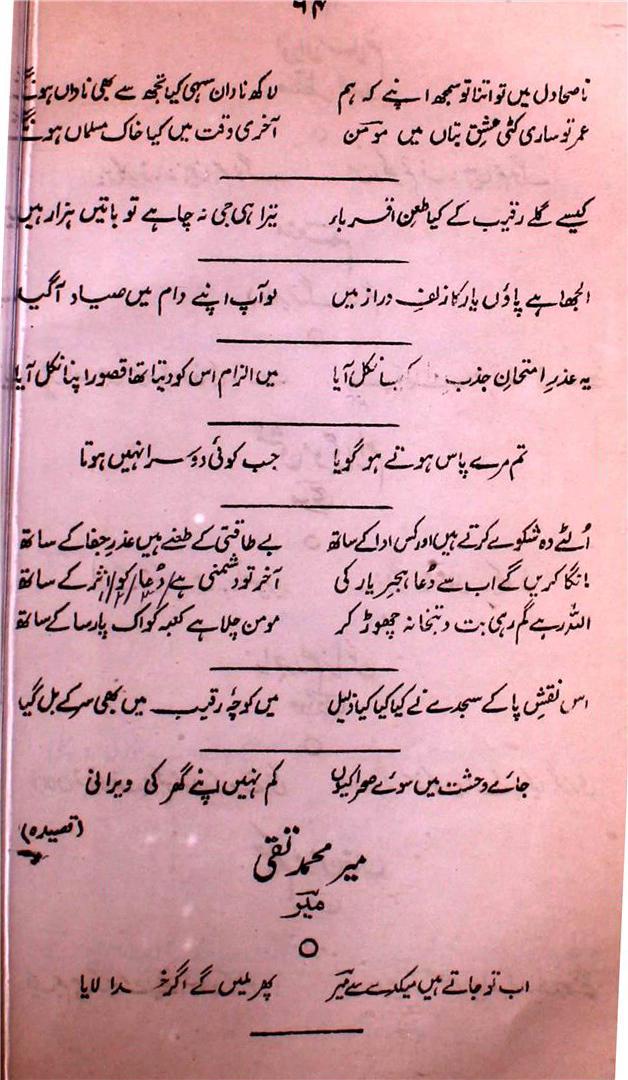 ۶۴
ناصحا دل میں تو اتنا تو سمجھ اپنے کہ ہم لاکھ نادان سہی کیا تجھ سے بھی ناداں ہونگے
عمر تو ساری کٹی عشقِ بتاں میں مومن آخری وقت میں کیا خاک مسلماں ہونگے
کیسے گلے رقیب کے کیا طعنِ اقرباء تیرا ہی جی نہ چاہے تو باتیں ہزار ہیں
الجھا ہے پاؤں یار کا زلفِ دراز میں لو آپ اپنے دام میں صیاد آ گیا
یہ عذرِ امتحانِ جذب نکل آیا میں الزام اس کو دیتا تھا قصور اپنا نکل آیا
تم مرے پاس ہوتے ہو گویا جب کوئی دوسرا نہیں ہوتا
اُلٹے وہ شکوے کرتے ہیں اور کس ادا کے ساتھ بے طاقتی کے طعنے ہیں عذرِ جفا کے ساتھ
مانگا کریں گے اب سے دُعا ہجرِ یار کی آخر تو دشمنی ہے دُعا کو اثر کے ساتھ
اللہ رے گم رہی بت و بتخانہ چھوڑ کر مومن چلا ہے کعبہ کو اک پارسا کے ساتھ
اس نقشِ پا کے سجدے نے کیا کیا کیا ذلیل میں کوچۂ رقیب میں بھی سر کے بل گیا
جائے وحشت میں سوئے صحرا کیوں کم نہیں اپنے گھر کی ویرانی
(قصیدہ)
میر محمد تقی
میر
اب تو جاتے ہیں میکدے سے میر پھر ملیں گے اگر خدا لایا